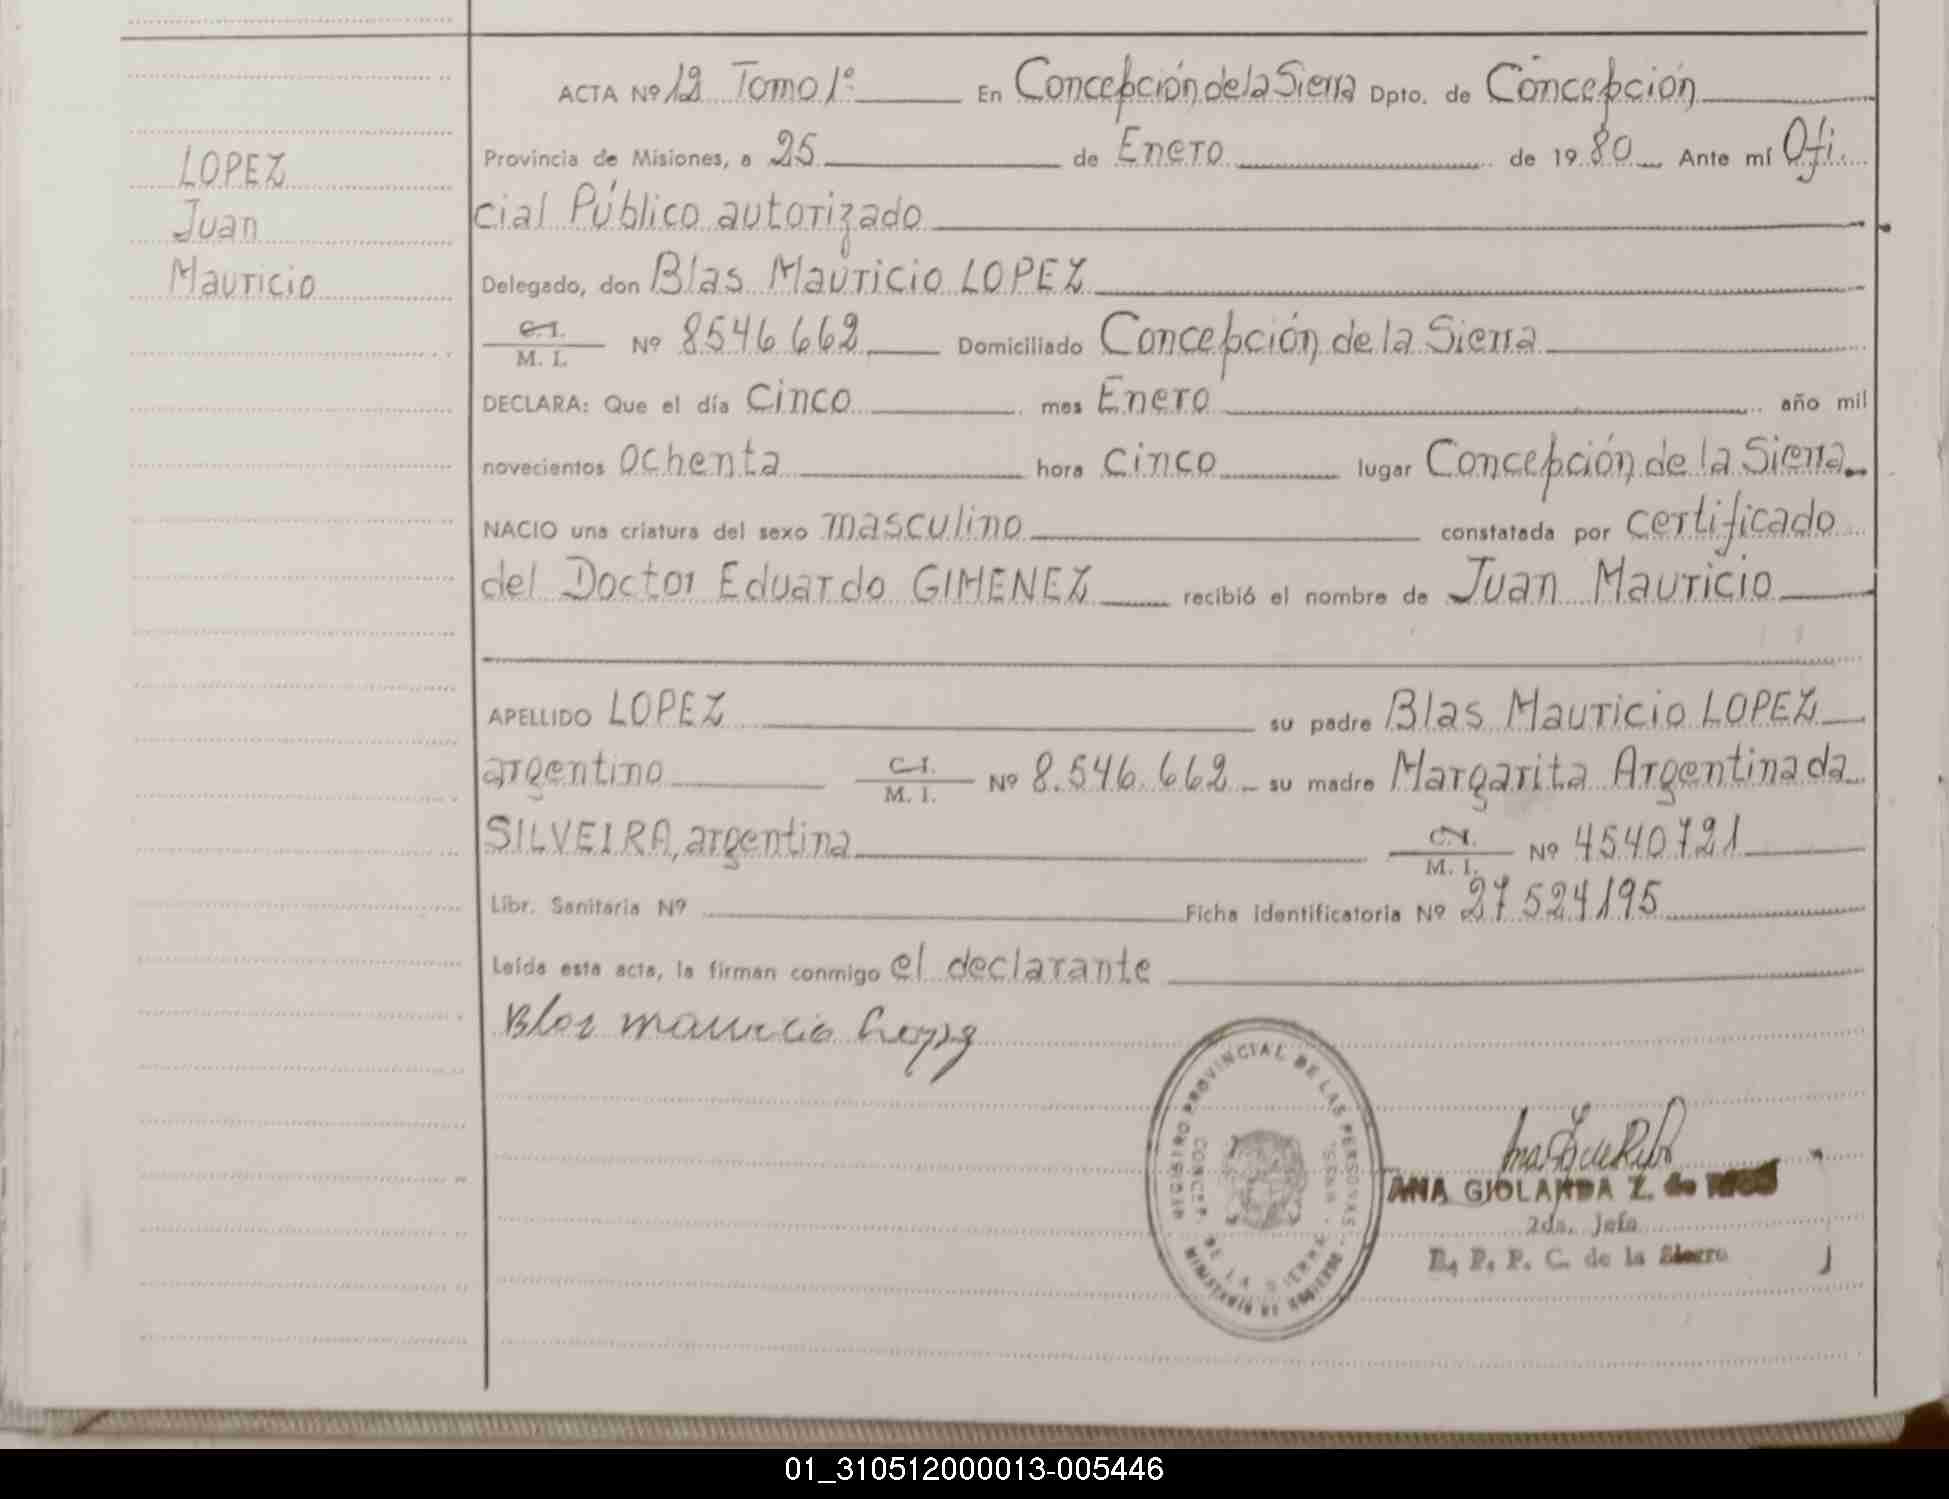 ACTA Nº 12 Tomo 1º En Concepción de la Sierra Dpto. de Concepción
LOPEZ
Juan
Mauricio
Provincia de Misiones, a 25 de Enero de 1980 Ante mí Ofi
cial Público autorizado
Delegado, don Blas Mauricio LOPEZ
C.I.
M. I. Nº 8546662 Domiciliado Concepción de la Sierra
DECLARA: Que el día cinco mes Enero año mil
novecientos ochenta hora cinco lugar Concepción de la Sierra
NACIO una criatura del sexo masculino constatada por certificado
del Doctor Eduardo GIMENEZ recibió el nombre de Juan Mauricio
APELLIDO LOPEZ su padre Blas Mauricio LOPEZ
argentino C.I. M. I. Nº 8.546.662 su madre Margarita Argentina da
SILVEIRA, argentina C.I. M. I. Nº 4540721
Libr. Sanitaria Nº Ficha identificatoria Nº 27524195
Leída esta acta, la firman conmigo el declarante
Blas mauricio Lopez
REGISTRO PROVINCIAL DE LAS PERSONAS
CONCEP. DE LA SIERRA
MINISTERIO DE GOBIERNO
ANA GIOLANDA Z. de
2da. Jefa
R. P. P. C. de la Sierra
01_310512000013-005446